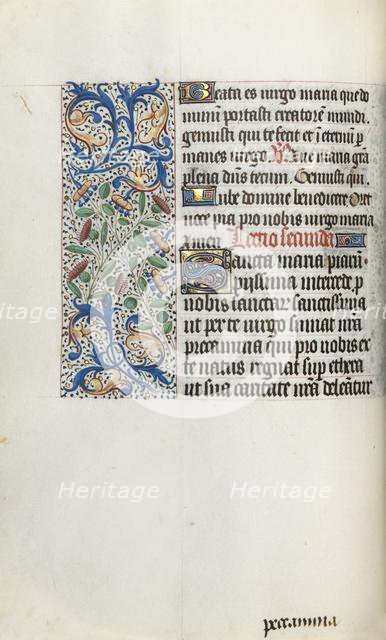 Beata es virgo maria que do
minum portasti creatorē mundi.
genuisti qui te fecit et ī eternū p
manes virgo. R̃ Aue maria gra
plena dn̄s tecum. Genuisti qui.
Iube domine benedicere
pro nobis virgo maria
Lectio secunda
Sancta maria piarū
pijssima intercede p
nobis sanctarum sanctissima
ut per te virgo sumat nr̄a
peccamina qui pro nobis ex
te natus regnat sup ethera
ut sua caritate nr̄a deleātur
peccamina
Heritage
Heritage
Heritage
Heritage